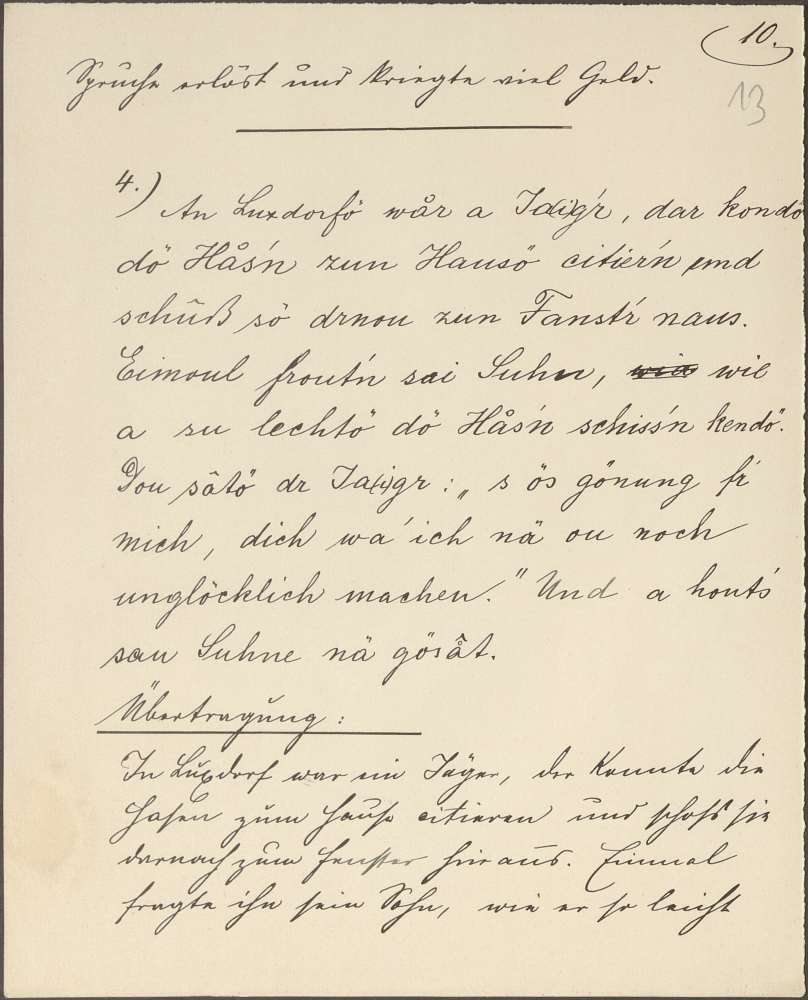 10.
13
Sprüche erlöst und kriegte viel Geld.
4.) An Luxdorfö wår a Ja(i)g'r, dar kondö
dö Hås'n zun Hausö citier'n und
schüß sö drnou zun Fanst'r naus.
Eimoul frout'n sai Suhn, wia wie
a su lechtö dö Hås'n schiss'n kendö.
Dou såtö dr Ja(i)gr: „s ös gönung fr
mich, dich wa' ich nä ou noch
unglöcklich machen." Und a hout's
sau Suhne nä gösåt.
Übertragung:
In Luxdorf war ein Jäger, der konnte die
Hasen zum Hause citieren und schoß sie
darnach zum Fenster hinaus. Einmal
fragte ihn sein Sohn, wie er so leicht